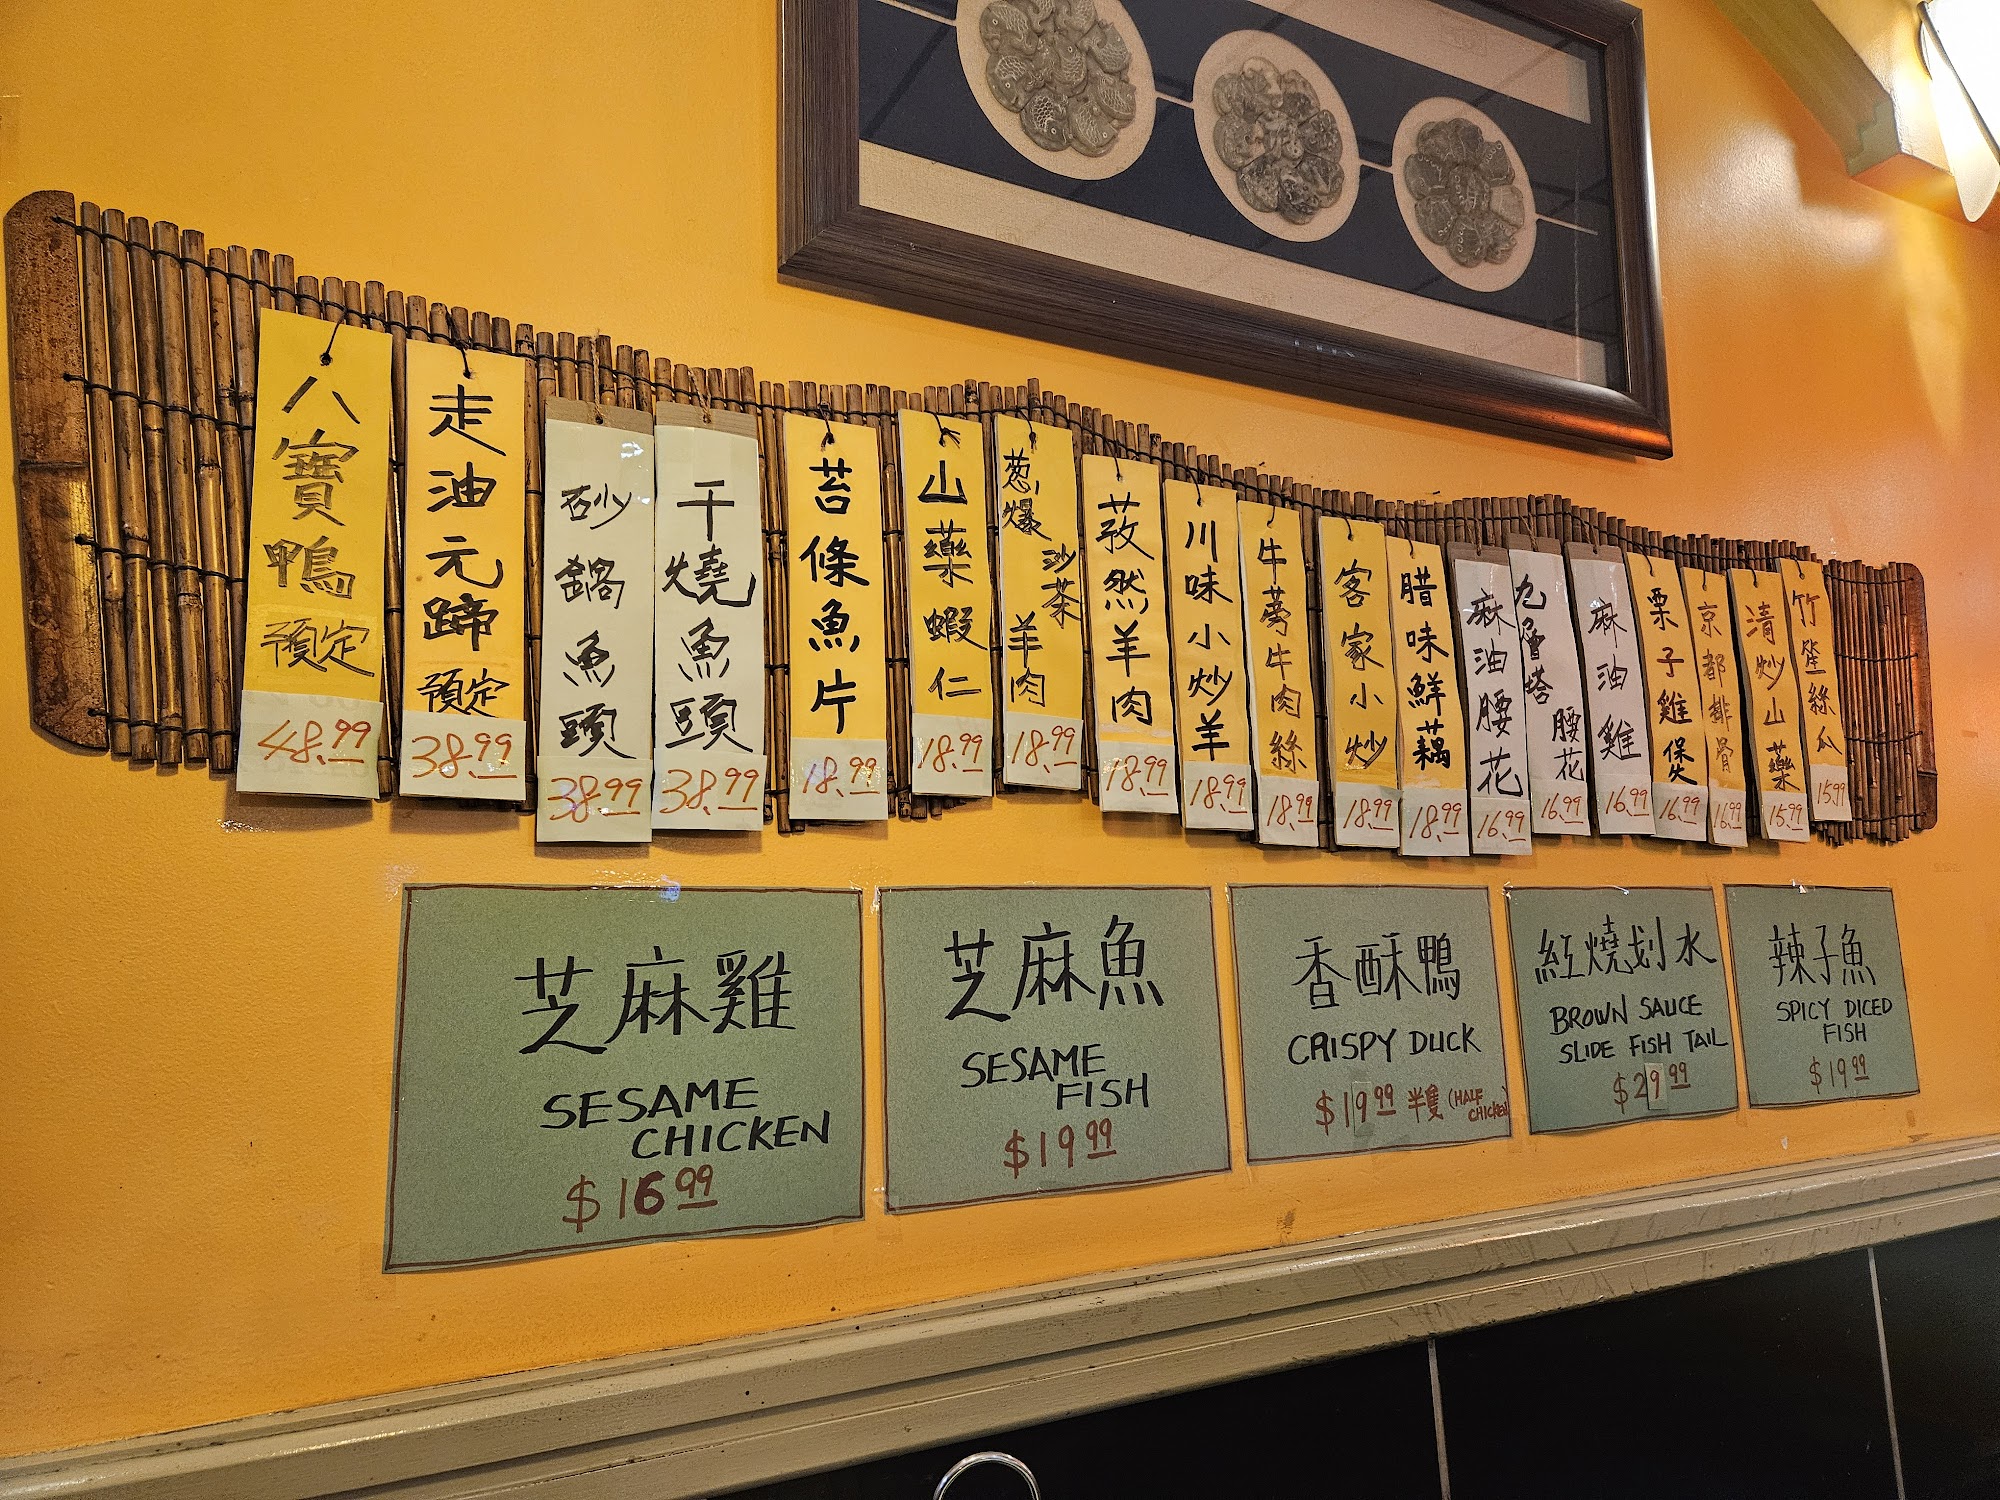 八寶鴨
預定
48.99
走油元蹄
預定
38.99
砂鍋魚頭
38.99
干燒魚頭
38.99
苔條魚片
18.99
山藥蝦仁
18.99
葱爆
沙茶
羊肉
18.99
孜然羊肉
18.99
川味小炒羊
18.99
牛蒡牛肉絲
18.99
客家小炒
18.99
腊味鮮藕
18.99
麻油腰花
16.99
九層塔
腰花
16.99
麻油雞
16.99
栗子雞煲
16.99
京都排骨
16.99
清炒山藥
15.99
竹笙絲瓜
15.99
芝麻雞
SESAME
CHICKEN
$16.99
芝麻魚
SESAME
FISH
$19.99
香酥鴨
CRISPY DUCK
$19.99 半隻 (HALF
CHICKEN)
紅燒划水
BROWN SAUCE
SLIDE FISH TAIL
$29.99
辣子魚
SPICY DICED
FISH
$19.99